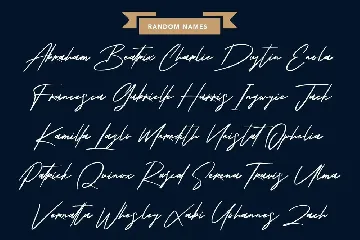 RANDOM NAMES
Abraham Beatrix Charlie Dustin Enola
Francesca Gabrielle Harris Ingwyie Jack
Kamilla Lazlo Meredith Neistat Ophelia
Patrick Quinox Rascal Serena Travis Ulma
Vernatta Whesley Xabi Yohannes Zach